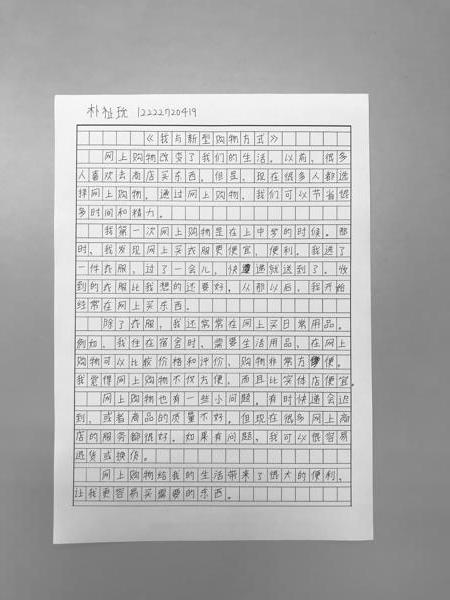 朴祉玧 12222720419
《我与新型购物方式》
网上购物改变了我们的生活。以前,很多
人喜欢去商店买东西,但是,现在很多人都选
择网上购物。通过网上购物,我们可以节省很
多时间和精力。
我第一次网上购物是在上中学的时候。那
时,我发现网上买衣服更便宜,便利。我选了
一件衣服,过了一会儿,快递就送到了。收
到的衣服比我想的还要好。从那以后,我开始
经常在网上买东西。
除了衣服,我还常常在网上买日常用品。
例如,我住在宿舍时,需要生活用品,在网上
购物可以比较价格和评价,购物非常方便。
我觉得网上购物不仅方便,而且比实体店便宜。
网上购物也有一些小问题。有时快递会迟
到,或者商品的质量不好。但现在很多网上商
店的服务都很好。如果有问题,我可以很容易
退货或换货。
网上购物给我的生活带来了很大的便利,
让我更容易买需要的东西。